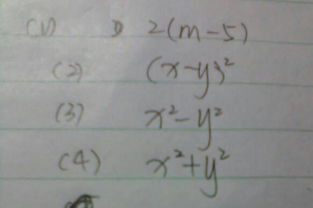 (1) 2(m-5)
(2) (x-y)²
(3) x²-y²
(4) x²+y²